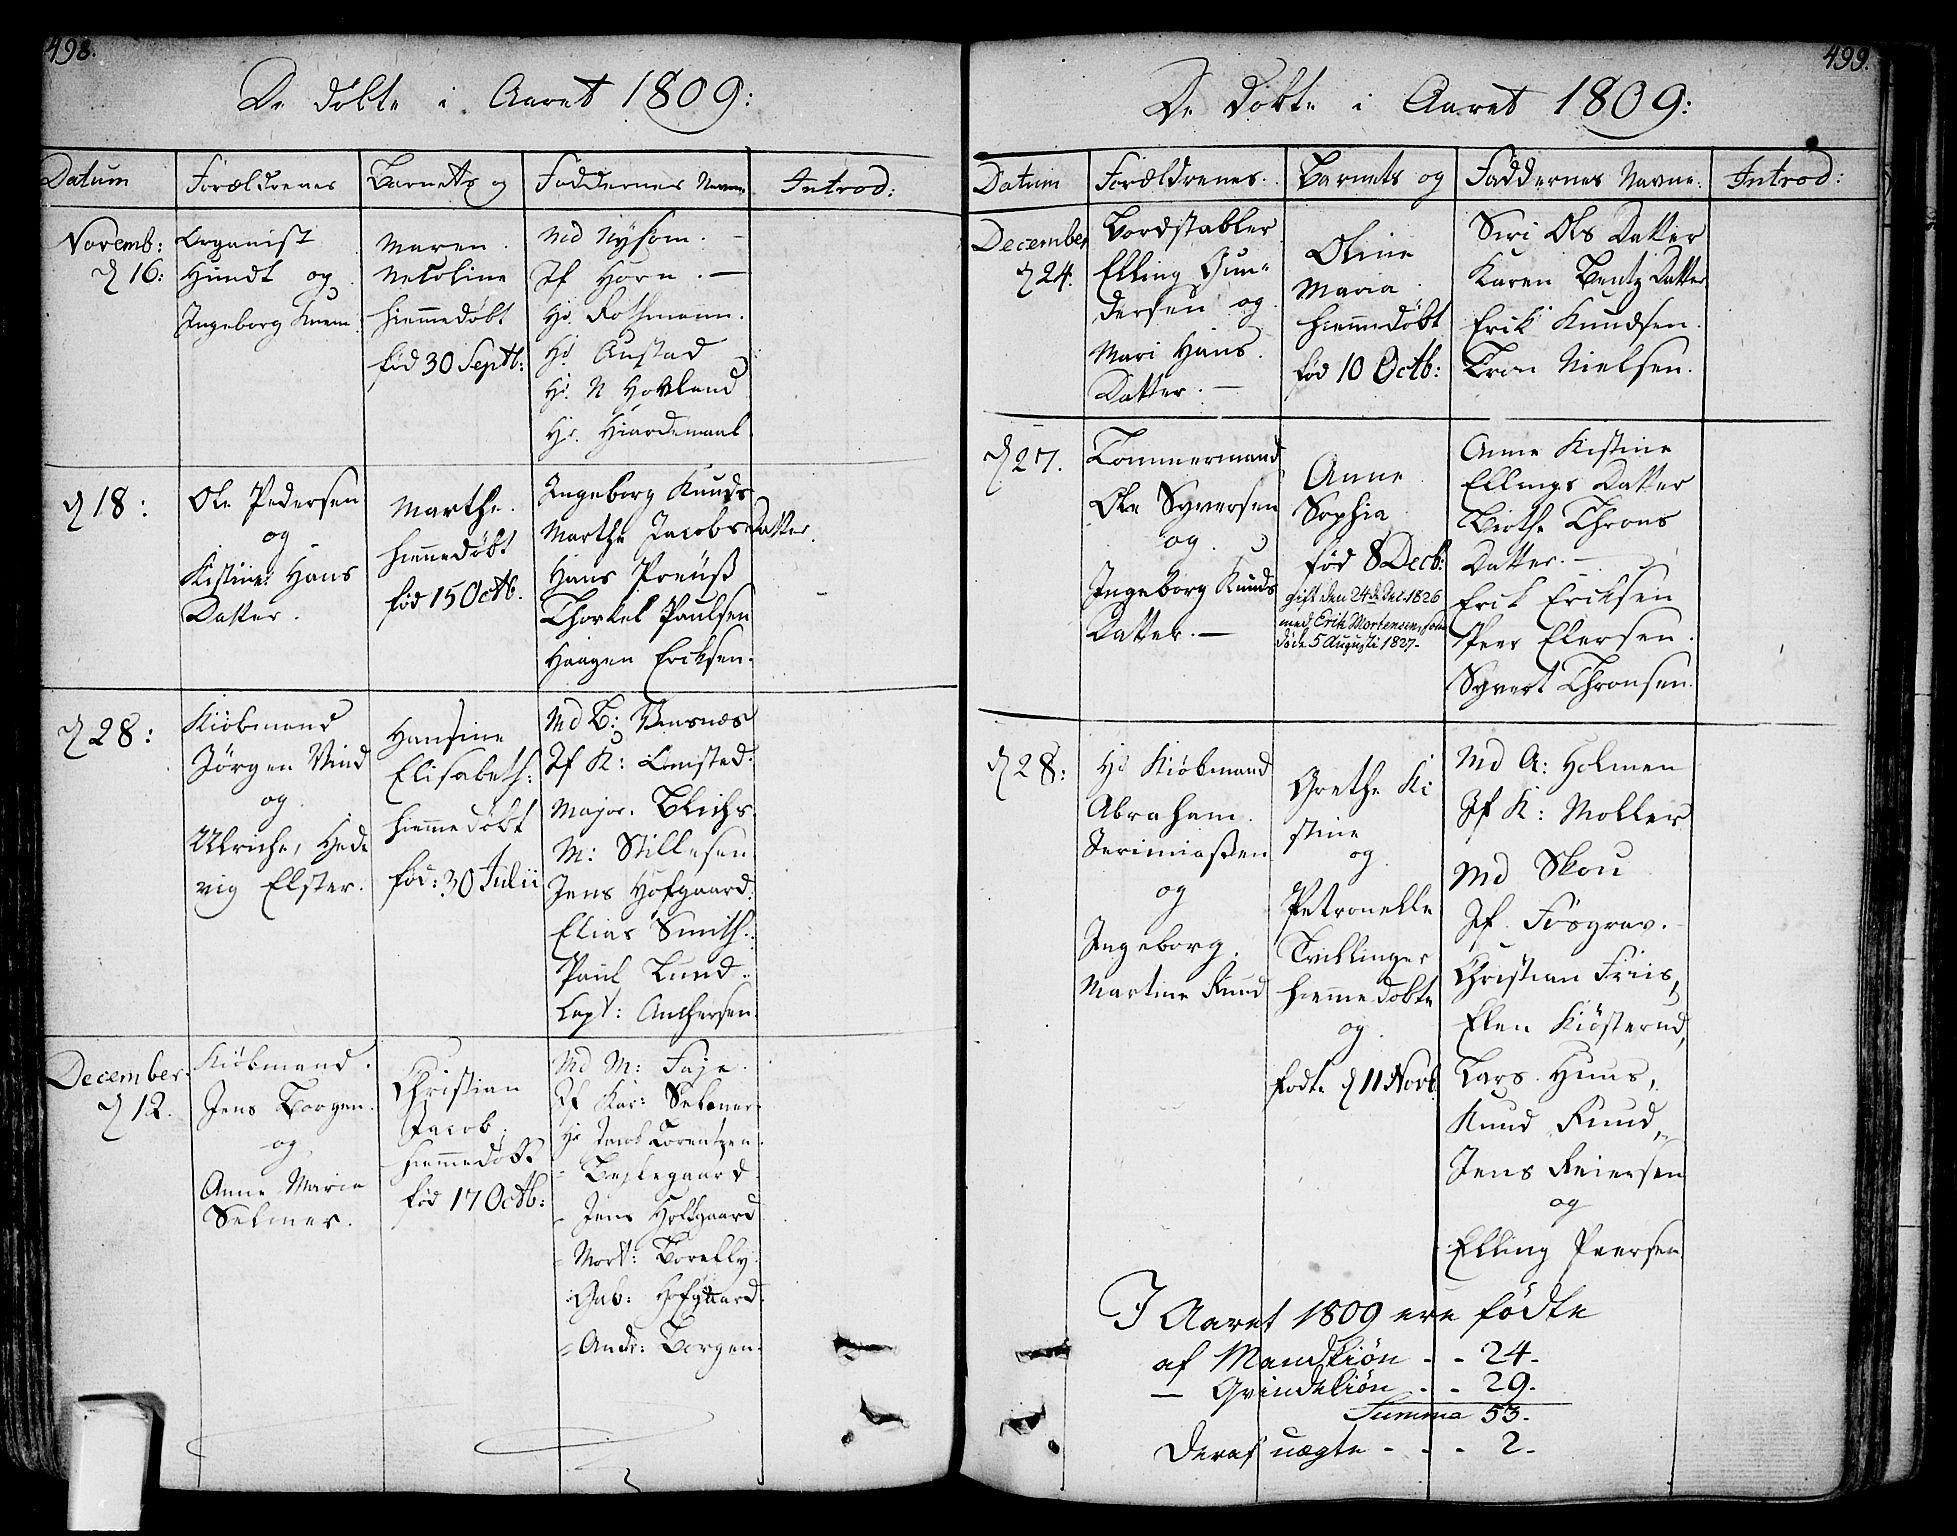 498.
De døbte i Aaret 1809:
Datum
Forældrenes
Barnets og
Faddernes Navne
Introd:
Novemb:
d 16:
Organist
Hundt og
Ingeborg
Maren
Nicoline
hiemmedøbt
fød 30 Septb:
Md Nysom.
Jf Horn. —
Hr. Rothmann.
Hr. Austad
Hr. N Hovland
Hr. Hiardemaal
d 18:
Ole Pedersen
og
Kistine Hans
Datter.
Marthe.
hiemmedøbt
fød 15 Octb.
Ingeborg Knuds
Marthe Jacobs Datter.
Hans Preüss
Thorkel Paulsen
Haagen Ericksen.
d 28:
Kiöbmand
Jörgen Vind
og
Ulriche, Hede
vig Elster.
Hansine
Elisabeth:
hiemmedøbt
fød: 30 Julii
Md B: Vensnæs
Jf K: Omsted.
Major. Blichs
M: Stillesen
Jens Hofgaard.
Elias Smith.
Paul Lund.
Capt: Anthersen.
December.
d 12.
Kiöbmand.
Jens Borgen.
og
Anne Marie
Selmer.
Christian
Jacob.
hiemmedøbt
fød 17 Octb:
Md M: Faje.
Jf Kar: Selmer
Hr Jacob Lorentzen.
- Beylegaard
- Jens Hofgaard
= Mort: Borelly.
= Gab: Hofgaard.
= Andr: Borgen.
499.
De døbte i Aaret 1809:
Datum
Forældrenes.
Barnets og
Faddernes Navne.
Introd:
December
d 24.
Bordstabler
Elling Gun-
dersen og
Mari Hans.
Datter. —
Oline
Maria.
hiemmedøbt
fød 10 Octb:
Siri Ols Datter
Karen Bentz Datter
Erik Knudsen.
Tron Nielsen.
d 27.
Tömmermand
Ole Syversen
og.
Ingeborg Knuds
Datter. —
Anne
Sophia
fød 8 Decb:
gift den 24d Oct. 1826
med, Erik Mortensen, som
døde 5 Augusti 1827-
Anne Kistine
Ellings Datter
Birthe Throns
Datter. —
Erik Eriksen
Peer Elersen.
Syvert Thronsen.
d 28:
Hr Kiöbmand
Abraham.
Jerimiassen
og
Ingeborg.
Martine Ruud
Grethe Ki
stine
og
Petronelle
Tvillinger
hiemmedøbte
og.
fødte d 11 Novb
Md A: Holmen
Jf K: Moller
Md Skou
Jf. Fosgrav.
Christian Friis,
Elen Kiösterud,
Lars Huus,
Knud Ruud,
Jens Reiersen
og
Elling Peersen
I Aaret 1809 ere födte
af Mandkiön - - 24-
— Qvindekiön - - 29.
Summa 53-
Deraf uægte - - - 2-